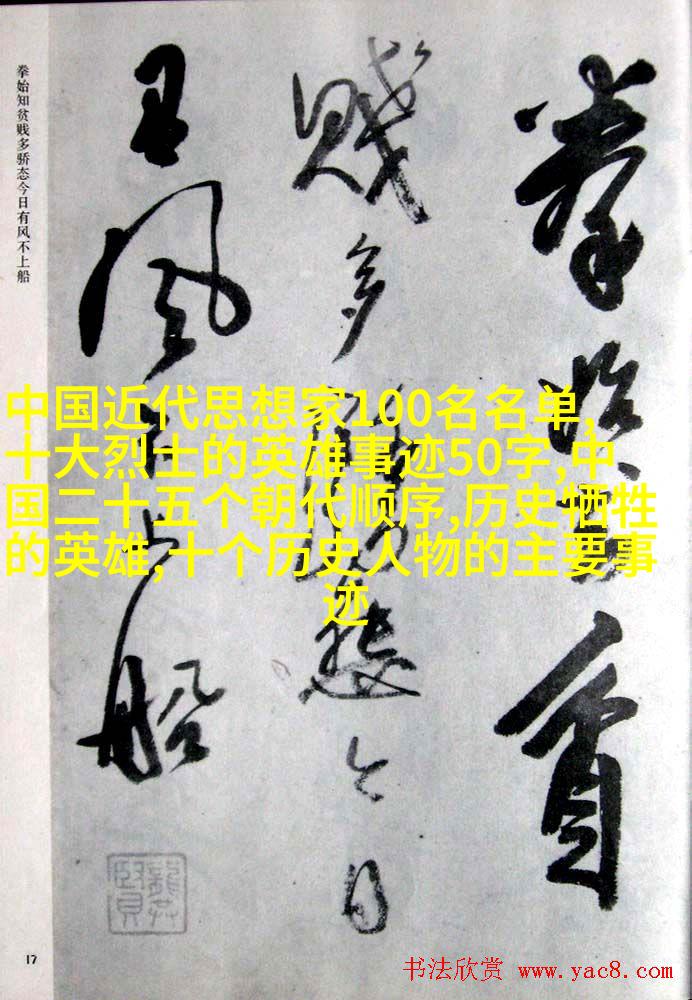 拳始知貧
賤多驕態今日
有風不上船
拳始知贫贱多骄态今日有风不上船
中国近代思想家100名名单,
十大烈士的英雄事迹50字,中
国二十五个朝代顺序,历史牺牲
的英雄,十个历史人物的主要事
迹
17
书法欣赏 www.yac8.com